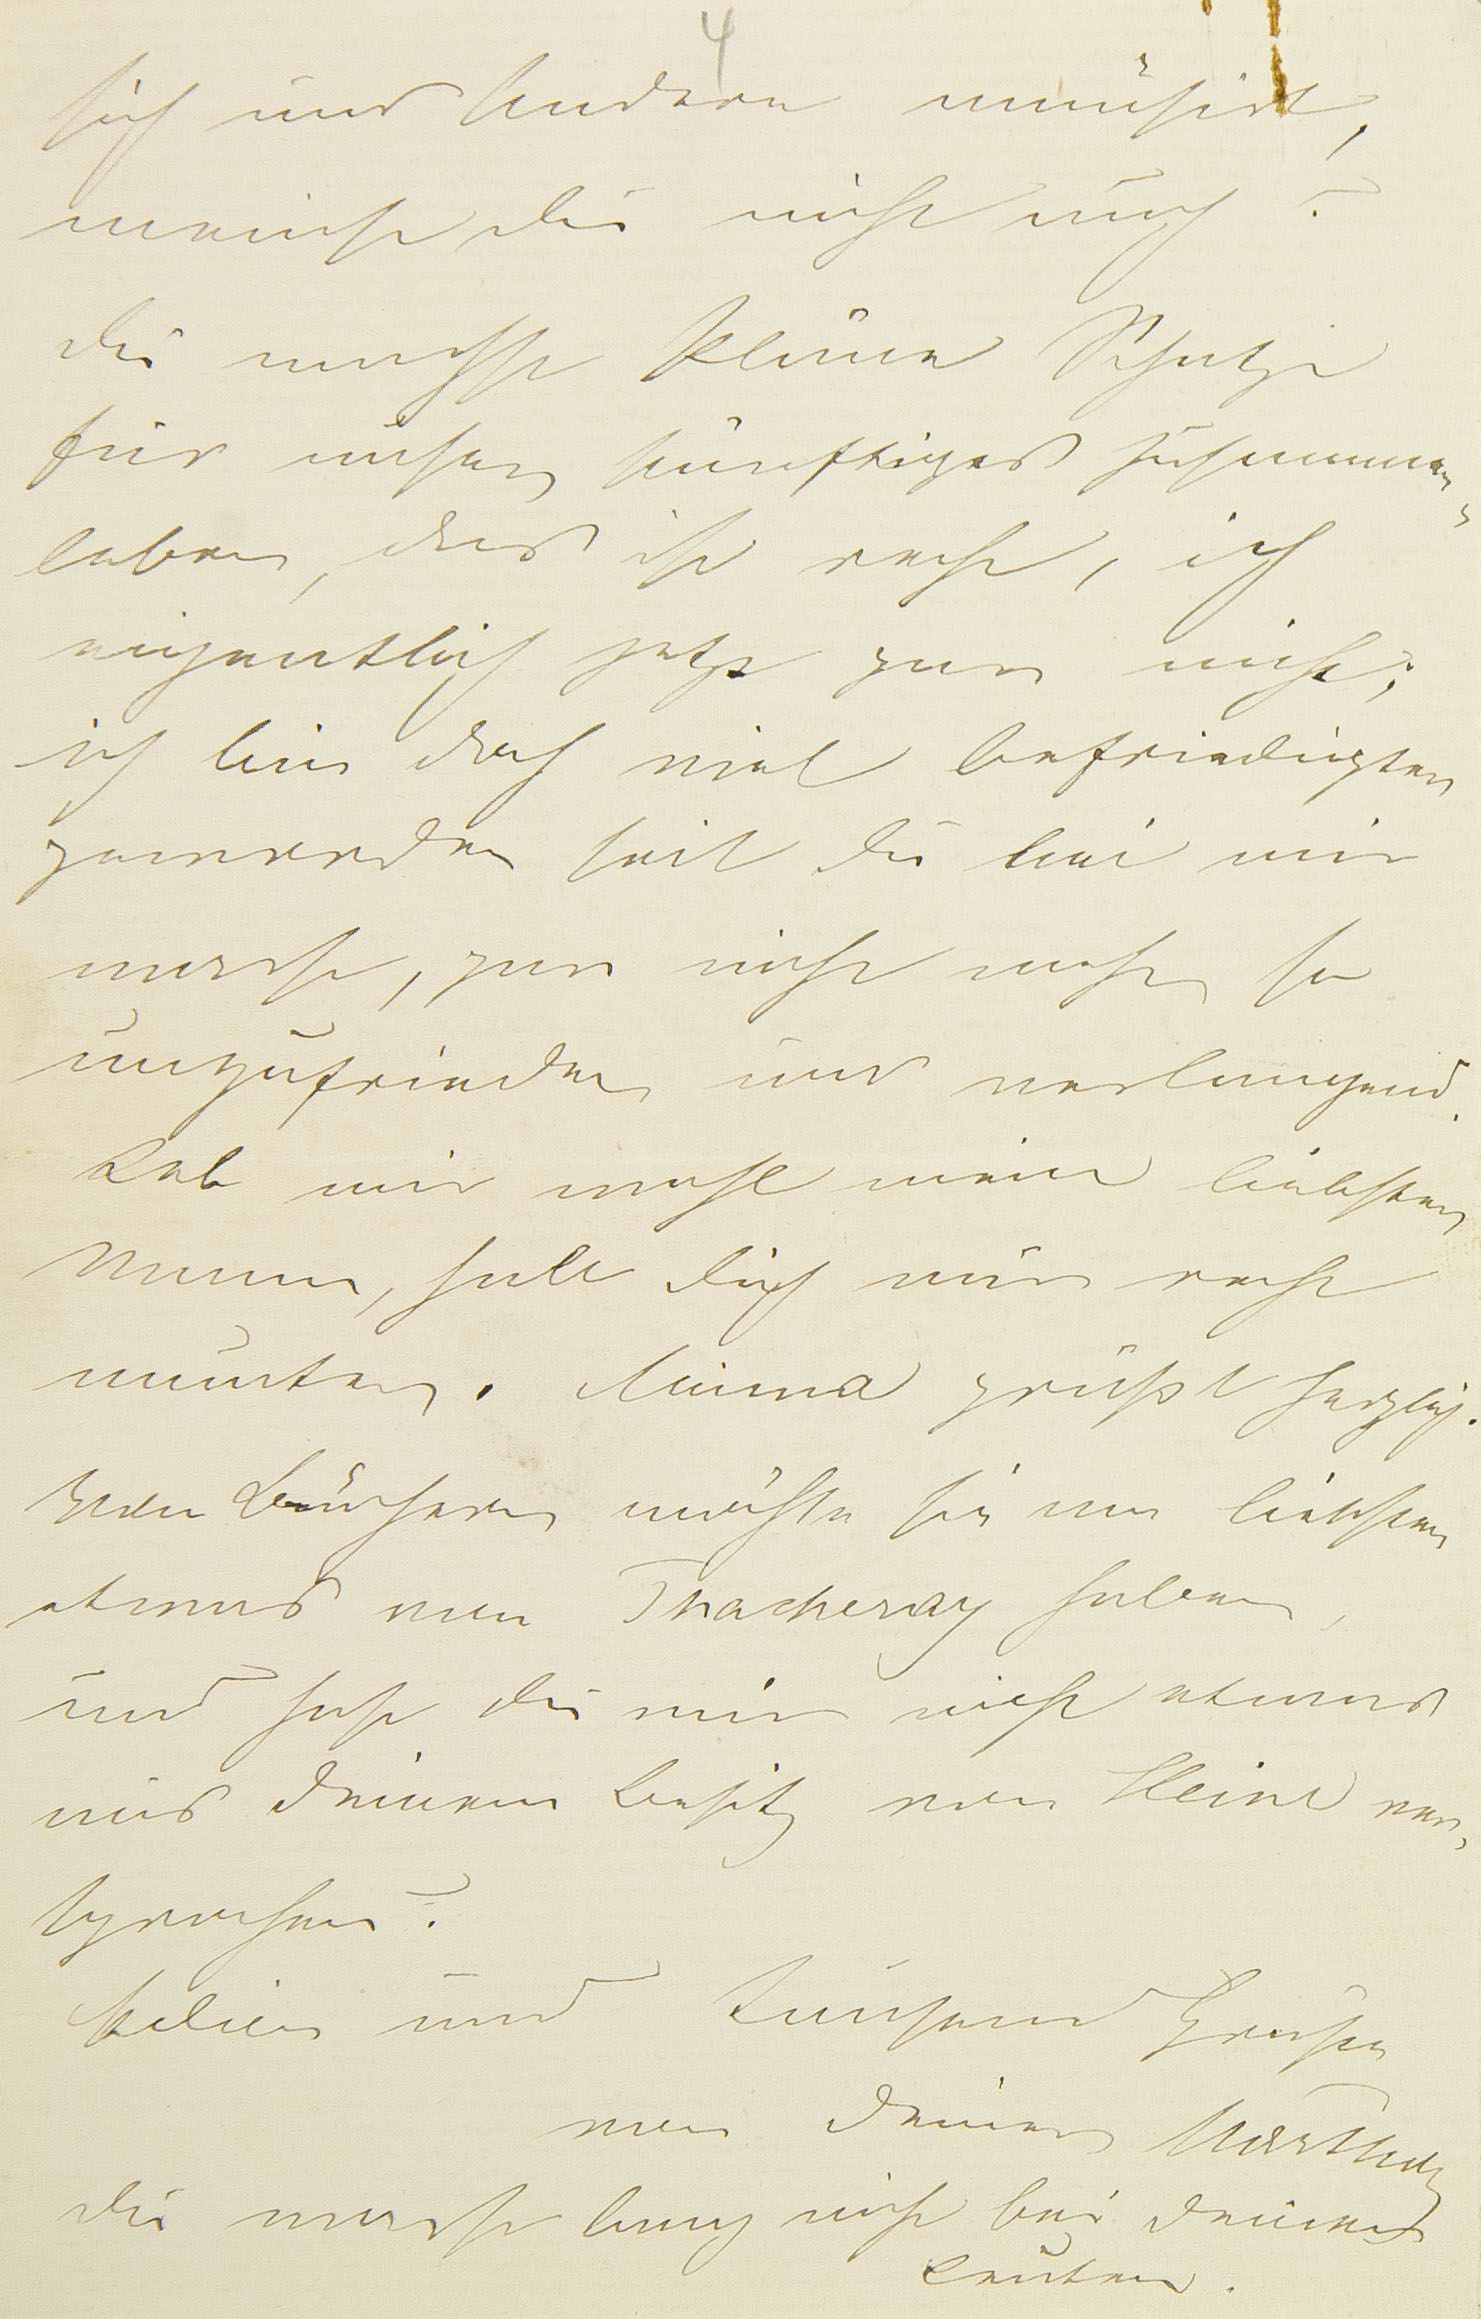 4
sich und Andere amüsirt,
meinst Du nicht auch?
Du machst Pläne Schatzi
für unser künftiges Zusammen-
leben, das ist recht, ich
eigentlich jetzt gar nicht;
ich bin doch viel befriedigter
geworden seit Du bei mir
warst, gar nicht mehr so
unzufrieden und verlangend.
Leb mir wohl mein liebster
Mann, halt Dich nur recht
munter. Minna grüßt herzlich.
Von Büchern möchte sie am liebsten
etwas von Thackeray haben,
und hast Du mir nicht etwas
aus Deinem Besitz von Heine ver-
sprochen?
und tausend Grüße
von Deiner Martha
Du warst lang nicht bei Deinen
Leuten.